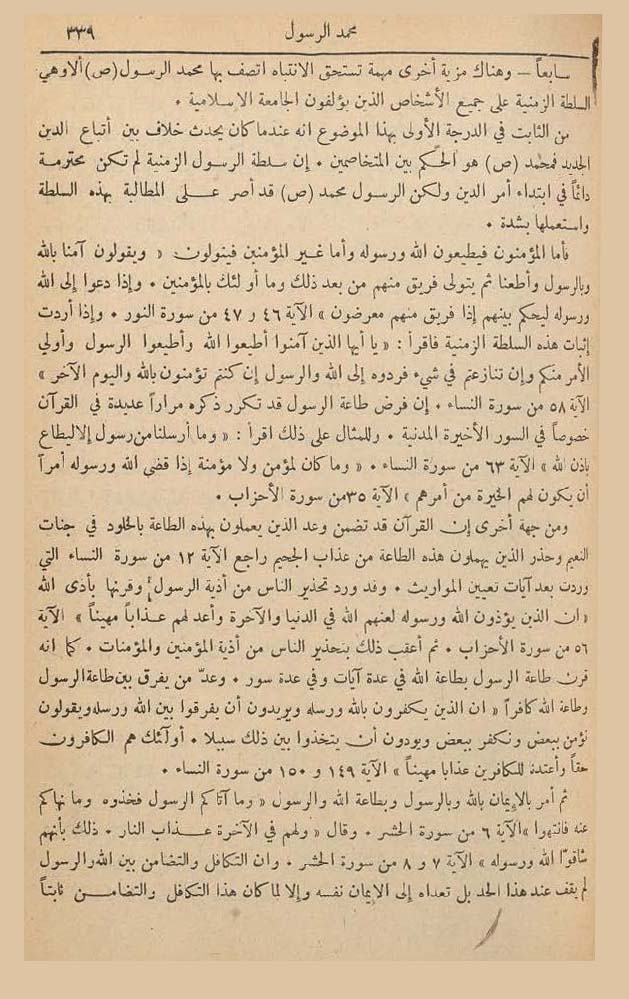 محمد الرسول ٣٣٩
سابعاً — وهناك مزية أخرى مهمة تستحق الانتباه اتصف بها محمد الرسول (ص) ألا وهي
السلطة الزمنية على جميع الأشخاص الذين يؤلفون الجامعة الاسلامية ٠
من الثابت في الدرجة الأولى بهذا الموضوع انه عندما كان يحدث خلاف بين أتباع الدين
الجديد فمحمد (ص) هو الحكم بين المتخاصمين ٠ إن سلطة الرسول الزمنية لم تكن محترمة
دائماً في ابتداء أمر الدين ولكن الرسول محمد (ص) قد أصر على المطالبة بهذه السلطة
واستعملها بشدة ٠
فأما المؤمنون فيطيعون الله ورسوله وأما غير المؤمنين فيتولون « ويقولون آمنا بالله
وبالرسول وأطعنا ثم يتولى فريق منهم من بعد ذلك وما أولئك بالمؤمنين ٠ وإذا دعوا إلى الله
ورسوله ليحكم بينهم إذا فريق منهم معرضون » الآية ٤٦ و ٤٧ من سورة النور ٠ وإذا أردت
إثبات هذه السلطة الزمنية فاقرأ : « يا أيها الذين آمنوا أطيعوا الله وأطيعوا الرسول وأولي
الأمر منكم وإن تنازعتم في شيء فردوه إلى الله والرسول إن كنتم تؤمنون بالله واليوم الآخر »
الآية ٥٨ من سورة النساء ٠ إن فرض طاعة الرسول قد تكرر ذكره مراراً عديدة في القرآن
خصوصاً في السور الأخيرة المدنية ٠ وللمثال على ذلك اقرأ : « وما أرسلنا من رسول إلا ليطاع
باذن الله » الآية ٦٣ من سورة النساء ٠ « وما كان لمؤمن ولا مؤمنة إذا قضى الله ورسوله أمراً
أن يكون لهم الخيرة من أمرهم » الآية ٣٥ من سورة الأحزاب ٠
ومن جهة أخرى إن القرآن قد تضمن وعد الذين يعملون بهذه الطاعة بالخلود في جنات
النعيم وحذر الذين يهملون هذه الطاعة من عذاب الجحيم راجع الآية ١٢ من سورة النساء التي
وردت بعد آيات تعيين المواريث ٠ وقد ورد تحذير الناس من أذية الرسول وقرنها بأذى الله
« ان الذين يؤذون الله ورسوله لعنهم الله في الدنيا والآخرة وأعد لهم عذاباً مهيناً » الآية
٥٦ من سورة الأحزاب ٠ ثم أعقب ذلك بتحذير الناس من أذية المؤمنين والمؤمنات ٠ كما انه
قرن طاعة الرسول بطاعة الله في عدة آيات وفي عدة سور ٠ وعدّ من يفرق بين طاعة الرسول
وطاعة الله كافراً « ان الذين يكفرون بالله ورسله ويريدون أن يفرقوا بين الله ورسله ويقولون
نؤمن ببعض ونكفر ببعض ويودون أن يتخذوا بين ذلك سبيلا ٠ أولئك هم الكافرون
حقاً وأعتدنا للكافرين عذابا مهيناً » الآية ١٤٩ و ١٥٠ من سورة النساء ٠
ثم أمر بالإيمان بالله وبالرسول وبطاعة الله والرسول « وما آتاكم الرسول فخذوه وما نهاكم
عنه فانتهوا » الآية ٦ من سورة الحشر ٠ وقال « ولهم في الآخرة عذاب النار ٠ ذلك بأنهم
شاقوا الله ورسوله » الآية ٧ و ٨ من سورة الحشر ٠ وان التكافل والتضامن بين الله والرسول
لم يقف عند هذا الحد بل تعداه إلى الإيمان نفسه وإلا لما كان هذا التكافل والتضامن ثابتاً